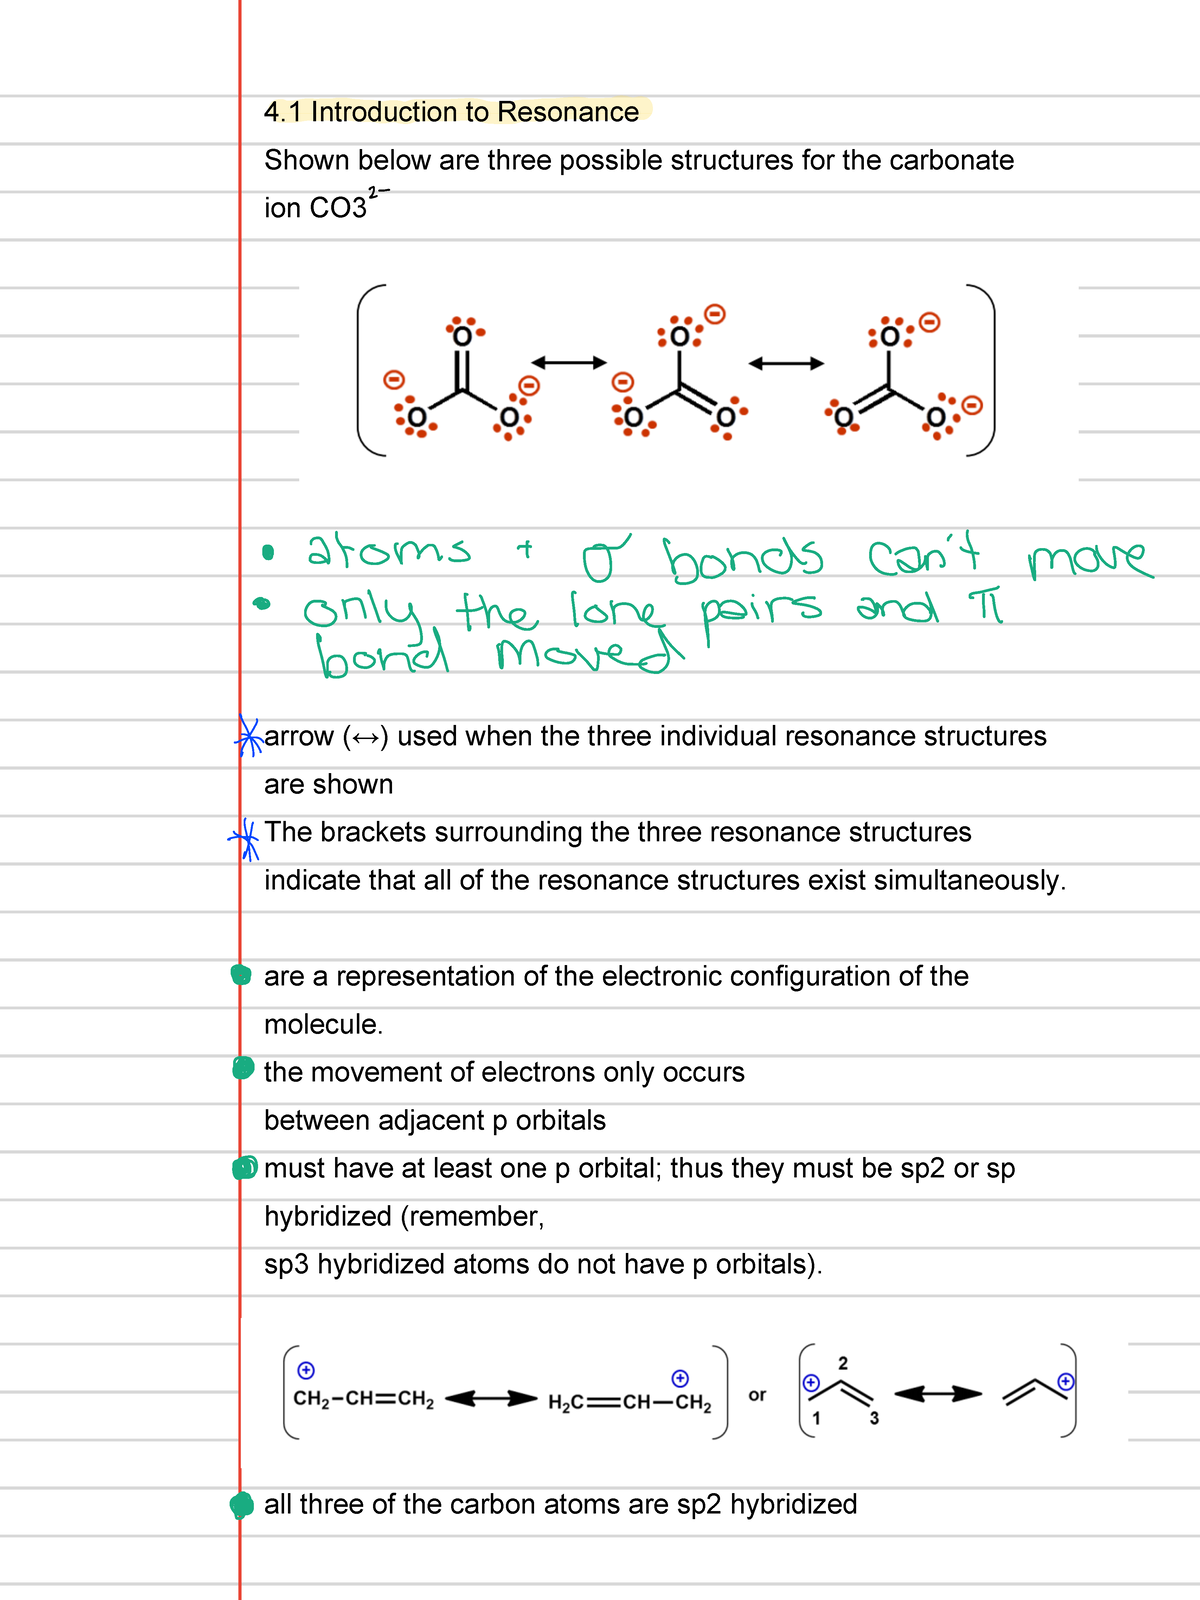 4.1 Introduction to Resonance
Shown below are three possible structures for the carbonate
ion CO3²⁻
O O O
O O O O O O
• atoms + σ bonds can't move
• only the lone pairs and π
bond moved
arrow (↔) used when the three individual resonance structures
are shown
The brackets surrounding the three resonance structures
indicate that all of the resonance structures exist simultaneously.
are a representation of the electronic configuration of the
molecule.
the movement of electrons only occurs
between adjacent p orbitals
must have at least one p orbital; thus they must be sp2 or sp
hybridized (remember,
sp3 hybridized atoms do not have p orbitals).
CH₂-CH=CH₂ ↔ H₂C=CH-CH₂ or 1 2 3
all three of the carbon atoms are sp2 hybridized